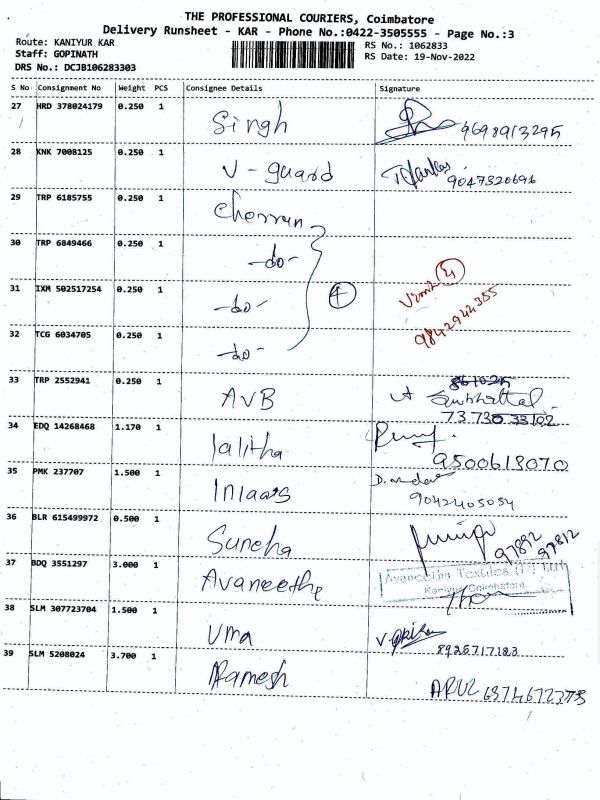 THE PROFESSIONAL COURIERS, Coimbatore
Delivery Runsheet - KAR - Phone No.:0422-3505555 - Page No.:3
Route: KANIYUR KAR
RS No.: 1062833
Staff: GOPINATH
RS Date: 19-Nov-2022
DRS No.: DCJB106283303
S No Consignment No Weight PCS Consignee Details Signature
27 HRD 378024179 0.250 1 Singh 9698913295
28 KNK 7008125 0.250 1 V-guard 9047320696
29 TRP 6185755 0.250 1 Cherran
30 TRP 6849466 0.250 1 -do-
31 IXM 502517254 0.250 1 -do- 4 Vimal 4
9842944355
32 TCG 6034705 0.250 1 -do-
33 TRP 2552941 0.250 1 AVB
73730 33102
34 EDQ 14268468 1.170 1 lalitha
9500613070
35 PMK 237707 1.500 1 Inlaas
9042405054
36 BLR 615499972 0.500 1 Suneha 97892
97812
37 BDQ 3551297 3.000 1 Avaneethe Avaneetha Textiles (P) Ltd
Kaniyur, Coimbatore
38 SLM 307723704 1.500 1 Uma
8925717183
39 SLM 5208024 3.700 1 Ramesh
ARUL 6374672373